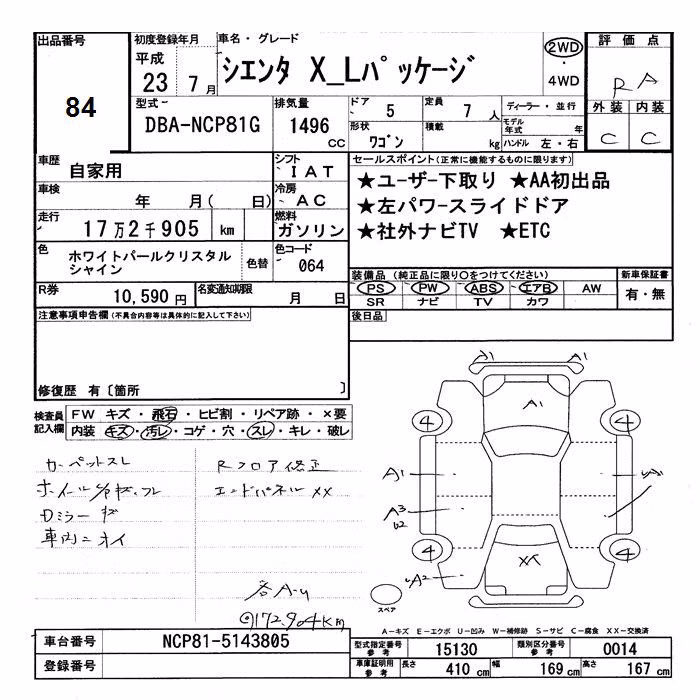 出品番号
84
初度登録年月
平成
23 7月
車名・グレード
シエンタ X_Lパッケージ
2WD
・
4WD
評価点
RA
外装 内装
C C
型式
DBA-NCP81G
排気量
1496 CC
ドア 5
定員 7人
形状 ワゴン
積載 kg
ディーラー・並行
モデル年式 年
ハンドル 左・右
車歴 自家用
シフト IAT
車検 年 月( 日)
冷房 AC
走行 17万2千905 km
燃料 ガソリン
色 ホワイトパールクリスタル
シャイン
色替
色コード 064
R券 10,590円
名変通知期限 月 日
セールスポイント(正常に機能するものに限ります)
★ユーザー下取り ★AA初出品
★左パワースライドドア
★社外ナビTV ★ETC
装備品(純正品に限り○をつけてください)
PS PW ABS エアB AW
SR ナビ TV カワ
新車保証書
有・無
後日品
注意事項申告欄(不具合内容等は具体的に記入して下さい)
修復歴 有〔箇所 〕
検査員
記入欄
FW キズ・飛石・ヒビ割・リペア跡・×要
内装 キズ・汚レ・コゲ・穴・スレ・キレ・破レ
カーペットスレ
Rフロア修正
エンドパネルXX
Dミラーキズ
車内ニオイ
@172,904km
A1 A1
A1
4 4
A1
A3
U2
4 4
A2
XX
スペア
A-キズ E-エクボ U-凹み W-補修跡 S-サビ C-腐食 XX-交換済
車台番号 NCP81-5143805
登録番号
型式指定番号
参考
15130
類別区分番号
参考
0014
車庫証明用
参考
長さ 410 cm
幅 169 cm
高さ 167 cm